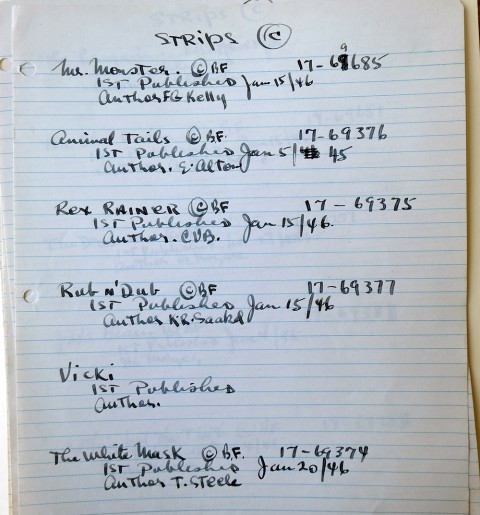 STRIPS ©
Mr. Monster. © BF 17-69685
1ST Published Jan 15/46
Author FG Kelly
Animal Tails © BF. 17-69376
1ST Published Jan 5/45
Author. E. Alton
Rex RAINER © BF 17-69375
1ST Published Jan 15/46.
Author. CVB.
Rub n' Dub © BF 17-69377
1ST Published Jan 15/46
Author K.R.
Vicki
1ST Published
Author.
The White Mask © B.F. 17-69374
1ST Published Jan 20/46
Author T. Steele